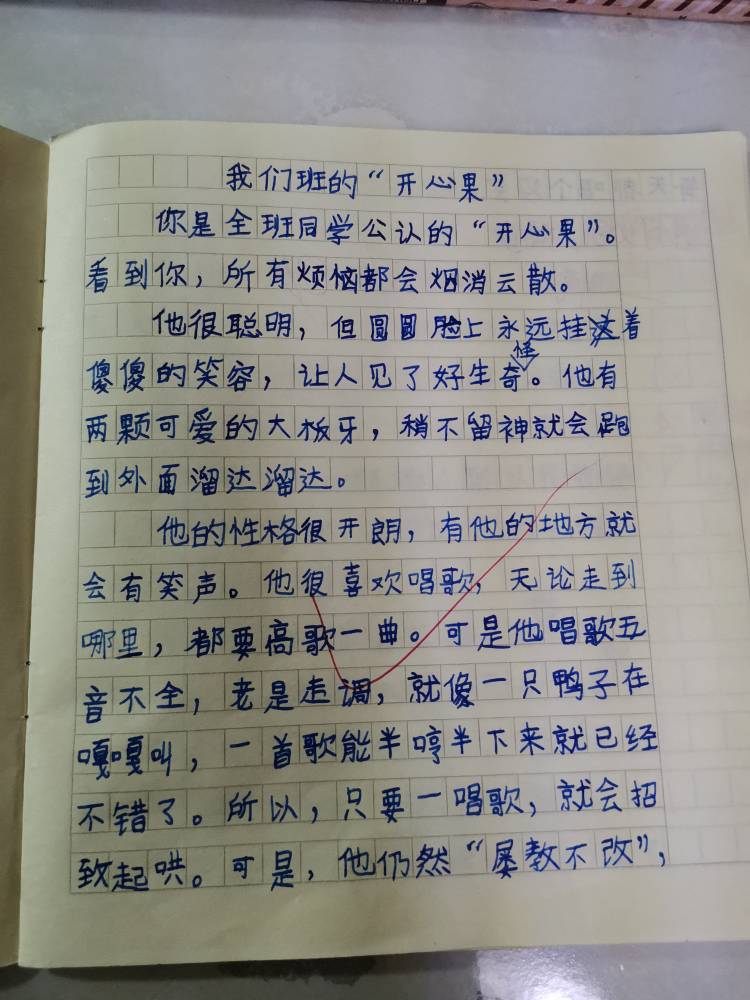 我们班的“开心果”
你是全班同学公认的“开心果”。
看到你，所有烦恼都会烟消云散。
他很聪明，但圆圆脸上永远挂着
傻傻的笑容，让人见了好生奇怪。他有
两颗可爱的大板牙，稍不留神就会跑
到外面溜达溜达。
他的性格很开朗，有他的地方就
会有笑声。他很喜欢唱歌，无论走到
哪里，都要高歌一曲。可是他唱歌五
音不全，老是走调，就像一只鸭子在
嘎嘎叫，一首歌能半哼半下来就已经
不错了。所以，只要一唱歌，就会招
致起哄。可是，他仍然“屡教不改”，